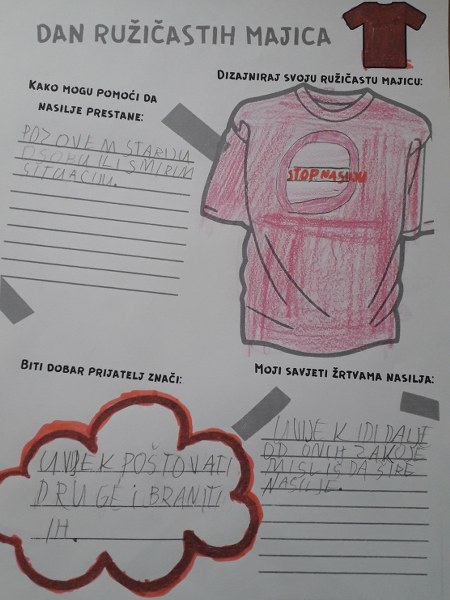 DAN RUŽIČASTIH MAJICA
KAKO MOGU POMOĆI DA
NASILJE PRESTANE:
POZOVEM STARIJU
OSOBU ILI SMIRIM
SITUACIJU.
DIZAJNIRAJ SVOJU RUŽIČASTU MAJICU:
STOP NASILJU
BITI DOBAR PRIJATELJ ZNAČI:
UVIJEK POŠTOVATI
DRUGE i BRANITI
IH.
MOJI SAVJETI ŽRTVAMA NASILJA:
UVIJEK IDI DALJE
OD ONIH ZA KOJE
MISLIŠ DA ŠIRE
NASILJE.